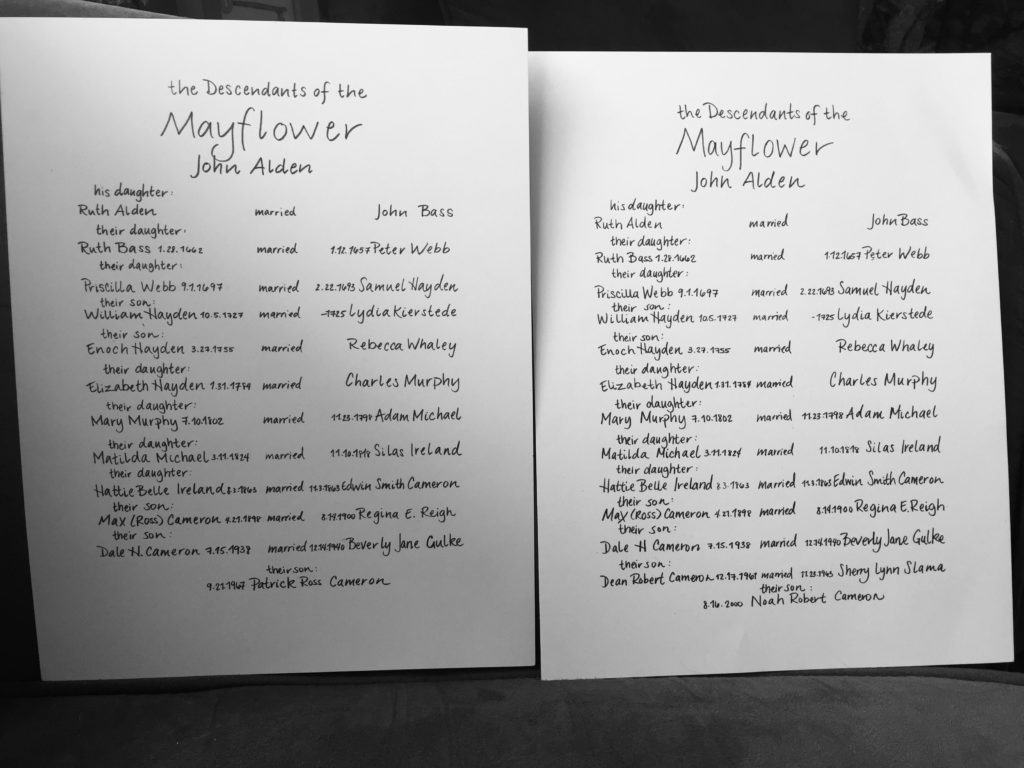 the Descendants of the
Mayflower
John Alden
his daughter:
Ruth Alden married John Bass
their daughter:
Ruth Bass 1.28.1662 married 1.12.1657 Peter Webb
their daughter:
Priscilla Webb 9.1.1697 married 2.22.1693 Samuel Hayden
their son:
William Hayden 10.5.1727 married -1725 Lydia Kierstede
their son:
Enoch Hayden 3.27.1755 married Rebecca Whaley
their daughter:
Elizabeth Hayden 1.31.1784 married Charles Murphy
their daughter:
Mary Murphy 7.10.1802 married 11.23.1798 Adam Michael
their daughter:
Matilda Michael 3.11.1824 married 11.10.1818 Silas Ireland
their daughter:
Hattie Belle Ireland 8.3.1863 married 11.3.1863 Edwin Smith Cameron
their son:
Max (Ross) Cameron 4.21.1898 married 8.14.1900 Regina E. Reigh
their son:
Dale H. Cameron 7.15.1938 married 12.14.1940 Beverly Jane Gulke
their son:
9.23.1967 Patrick Ross Cameron
the Descendants of the
Mayflower
John Alden
his daughter:
Ruth Alden married John Bass
their daughter:
Ruth Bass 1.28.1662 married 1.12.1657 Peter Webb
their daughter:
Priscilla Webb 9.1.1697 married 2.22.1693 Samuel Hayden
their son:
William Hayden 10.5.1727 married -1725 Lydia Kierstede
their son:
Enoch Hayden 3.27.1755 married Rebecca Whaley
their daughter:
Elizabeth Hayden 1.31.1784 married Charles Murphy
their daughter:
Mary Murphy 7.10.1802 married 11.23.1798 Adam Michael
their daughter:
Matilda Michael 3.11.1824 married 11.10.1818 Silas Ireland
their daughter:
Hattie Belle Ireland 8.3.1863 married 11.3.1863 Edwin Smith Cameron
their son:
Max (Ross) Cameron 4.21.1898 married 8.14.1900 Regina E. Reigh
their son:
Dale H Cameron 7.15.1938 married 12.14.1940 Beverly Jane Gulke
their son:
Dean Robert Cameron 12.19.1961 married 11.23.1965 Sherry Lynn Slama
their son:
8.16.2000 Noah Robert Cameron